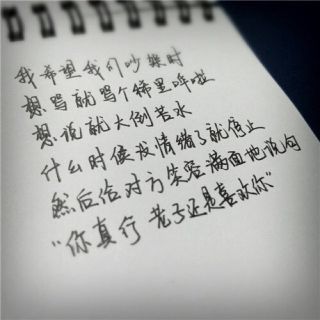 我希望我们吵架时
想骂就骂个稀里哗啦
想说就大倒苦水
什么时候没情绪了就停止
然后给对方笑容满面地说句
“你真行 老子还是喜欢你”